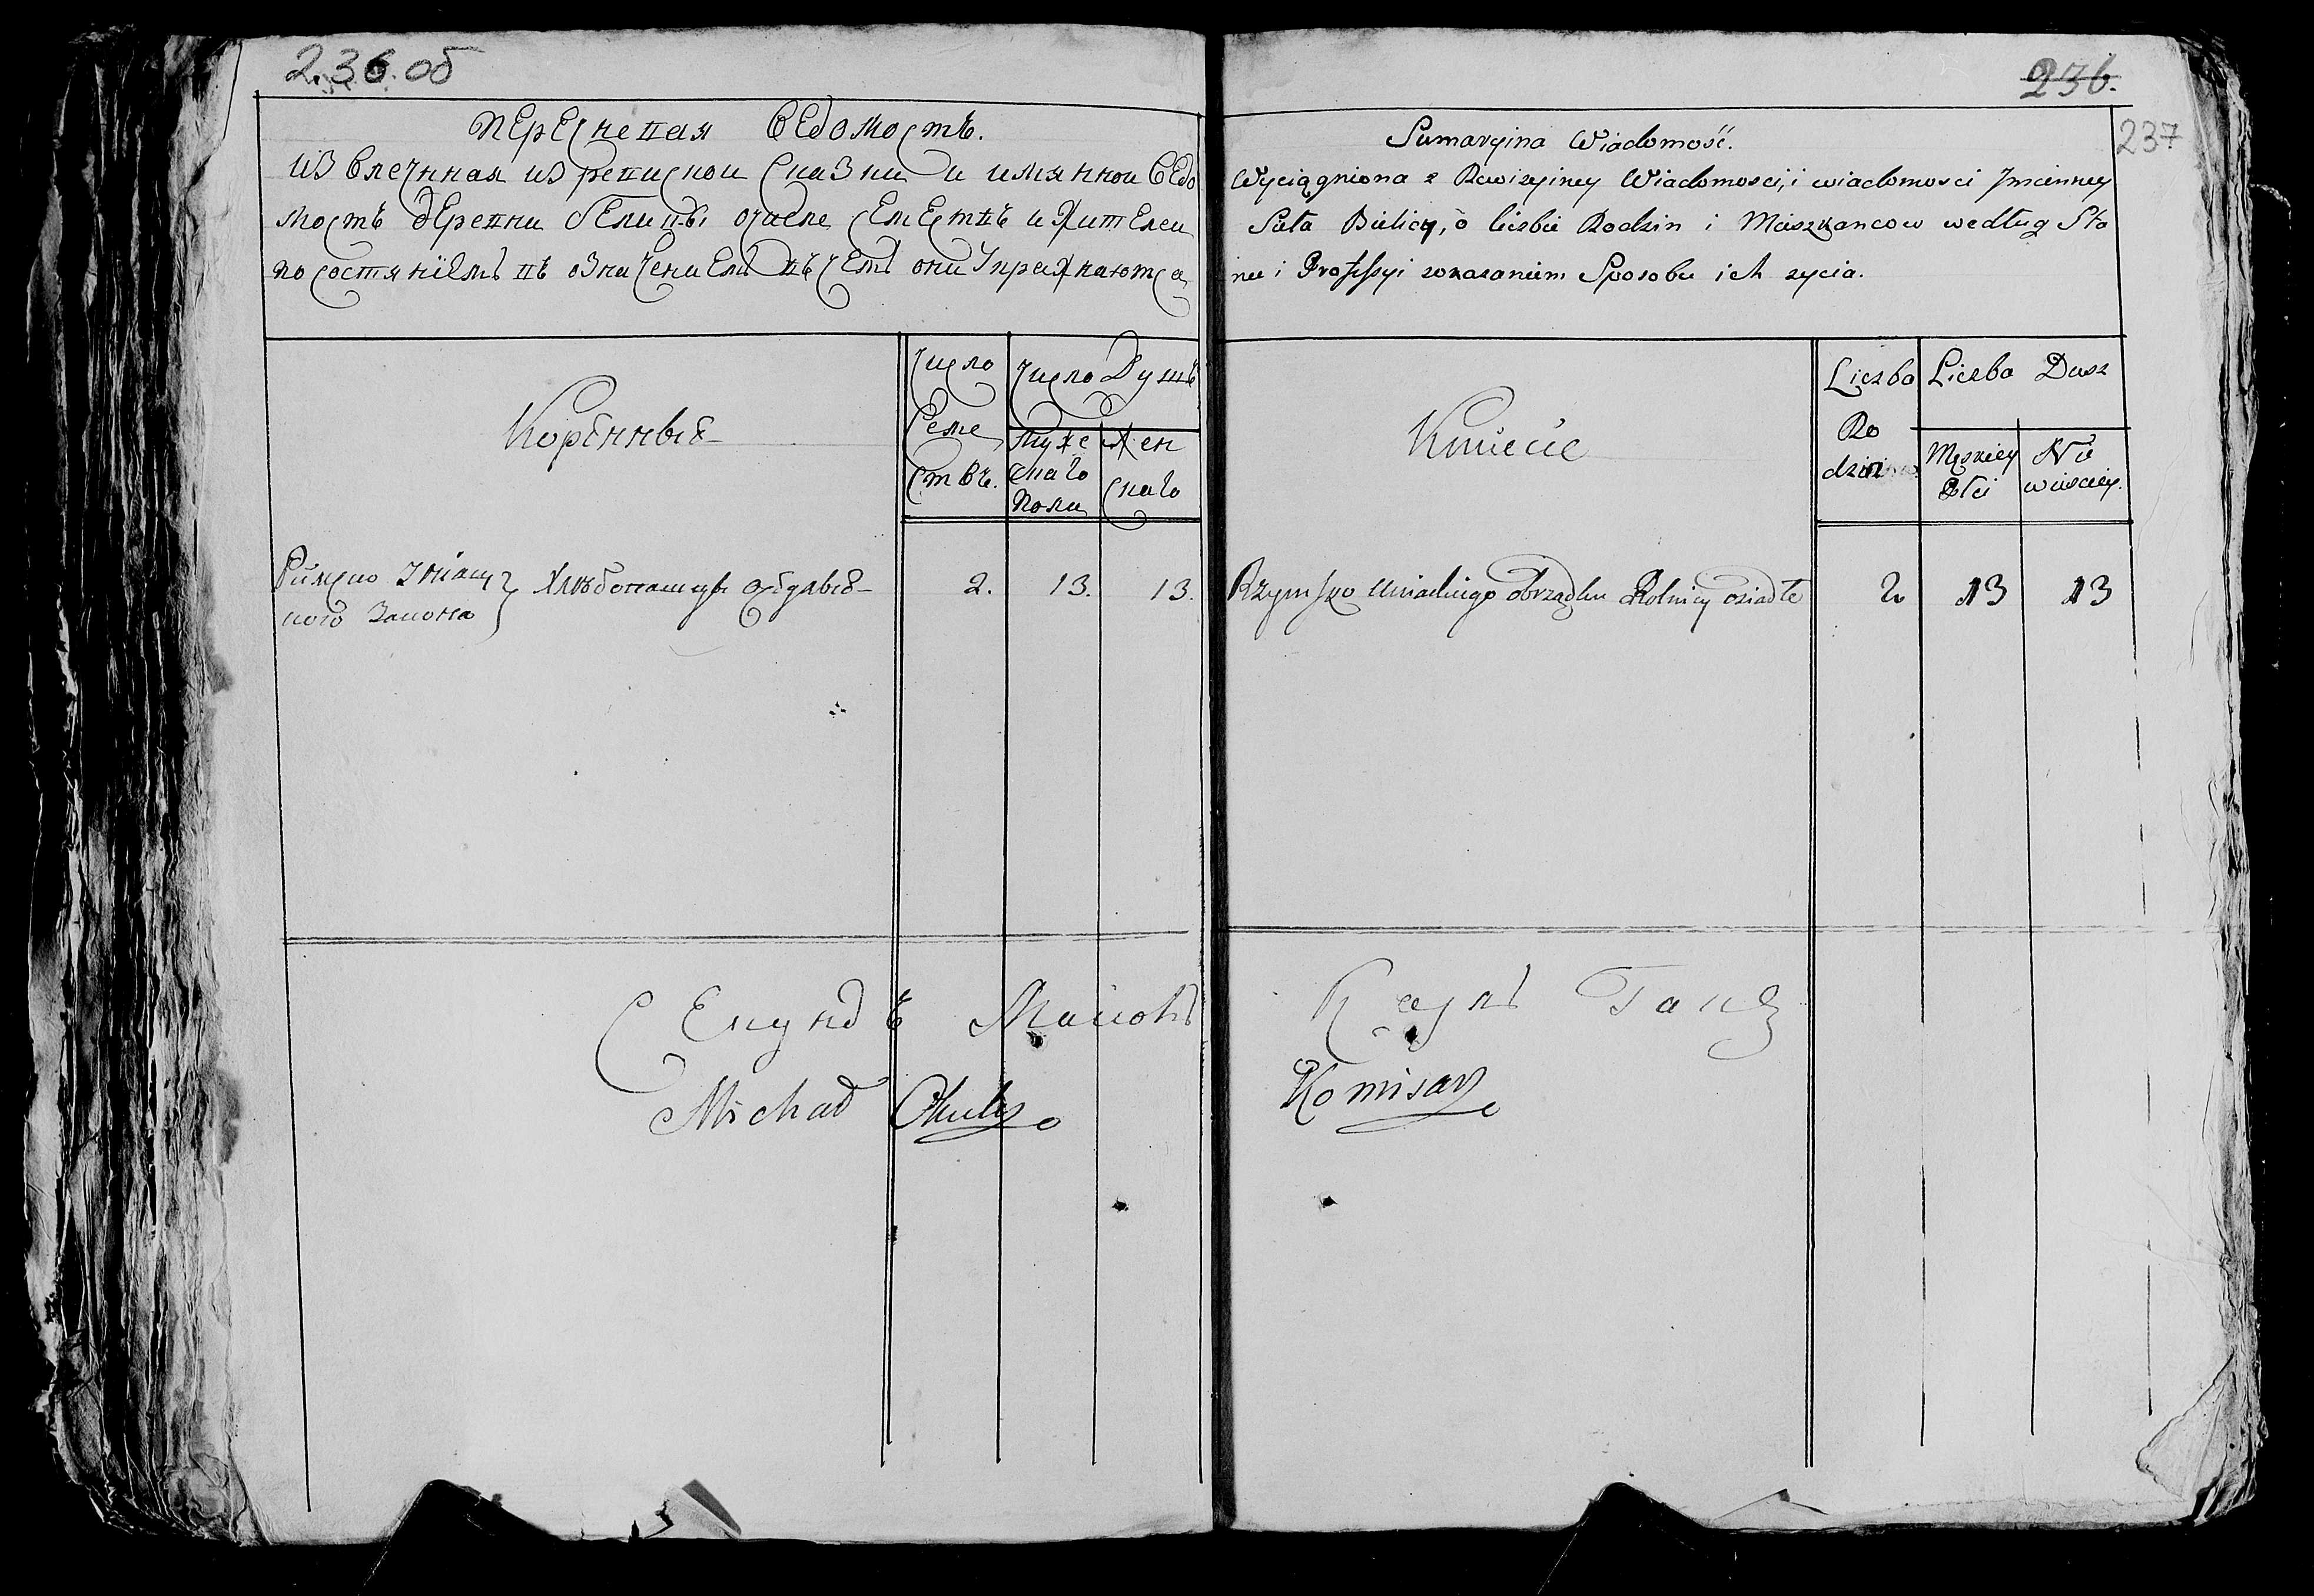 236.об
Перечневая Ведомость.
Извлечнная из ревиской сказки и имянной Ведо
мость деревни Белицы очисле семествъ и жителеи
по состянïемъ въ означениемъ въ чемъ они упражнаютса
Коренные
Число
Семе
ствъ.
Число Душъ
Муже
скаго
пола
Жен
скаго
Римско Униат
ского Закона
Хлѣбопашцы оседлые
2. 13. 13.
Michał
236.
237
Sumaryina Wiadomość.
Wyciągniona z Rewizyiney Wiadomosci, i wiadomosci Jmienney
Siła Bielicy, o liczbie Rodzin i Mieszkancow według Sta
nu i Professyi zokazaniem Sposobu ich zycia.
Kmiecie
Liczba
Ro
dzin
Liczba Dusz
Męskiey
Płci
Nie
wiesciey.
Rzymsko Uniackiego obrządku Rolnicy osiadłe
2 13 13
Komisarz